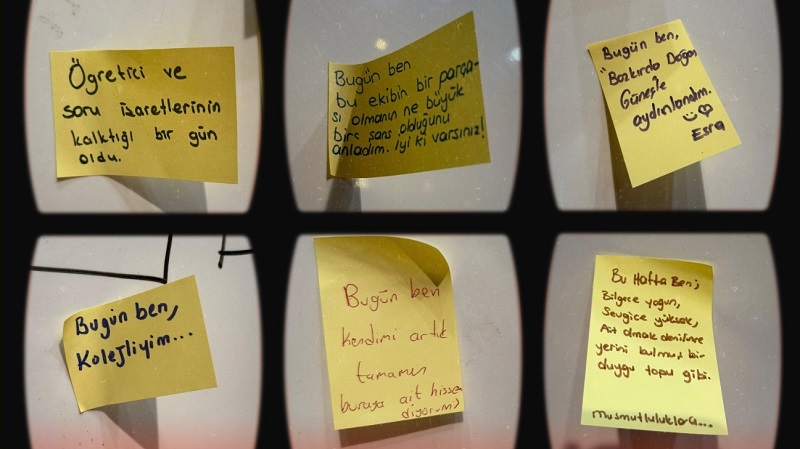 Öğretici ve
soru işaretlerinin
kalktığı bir gün
oldu.
Bugün ben
bu ekibin bir parça-
sı olmanın ne büyük
bir şans olduğunu
anladım. İyi ki varsınız!
Bugün ben,
"Bozkırda Doğan
Güneş"le
aydınlandım.
Esra
Bugün ben,
Kolejliyim...
Bugün ben
kendimi artık
tamamen
buraya ait hisse
diyorum:)
Bu Hafta Ben;
Bilgece yoğun,
Sevgice yüksek,
Ait olmak denilince
yerini bulmuş bir
duygu topu gibi.
Musmutluluklara...